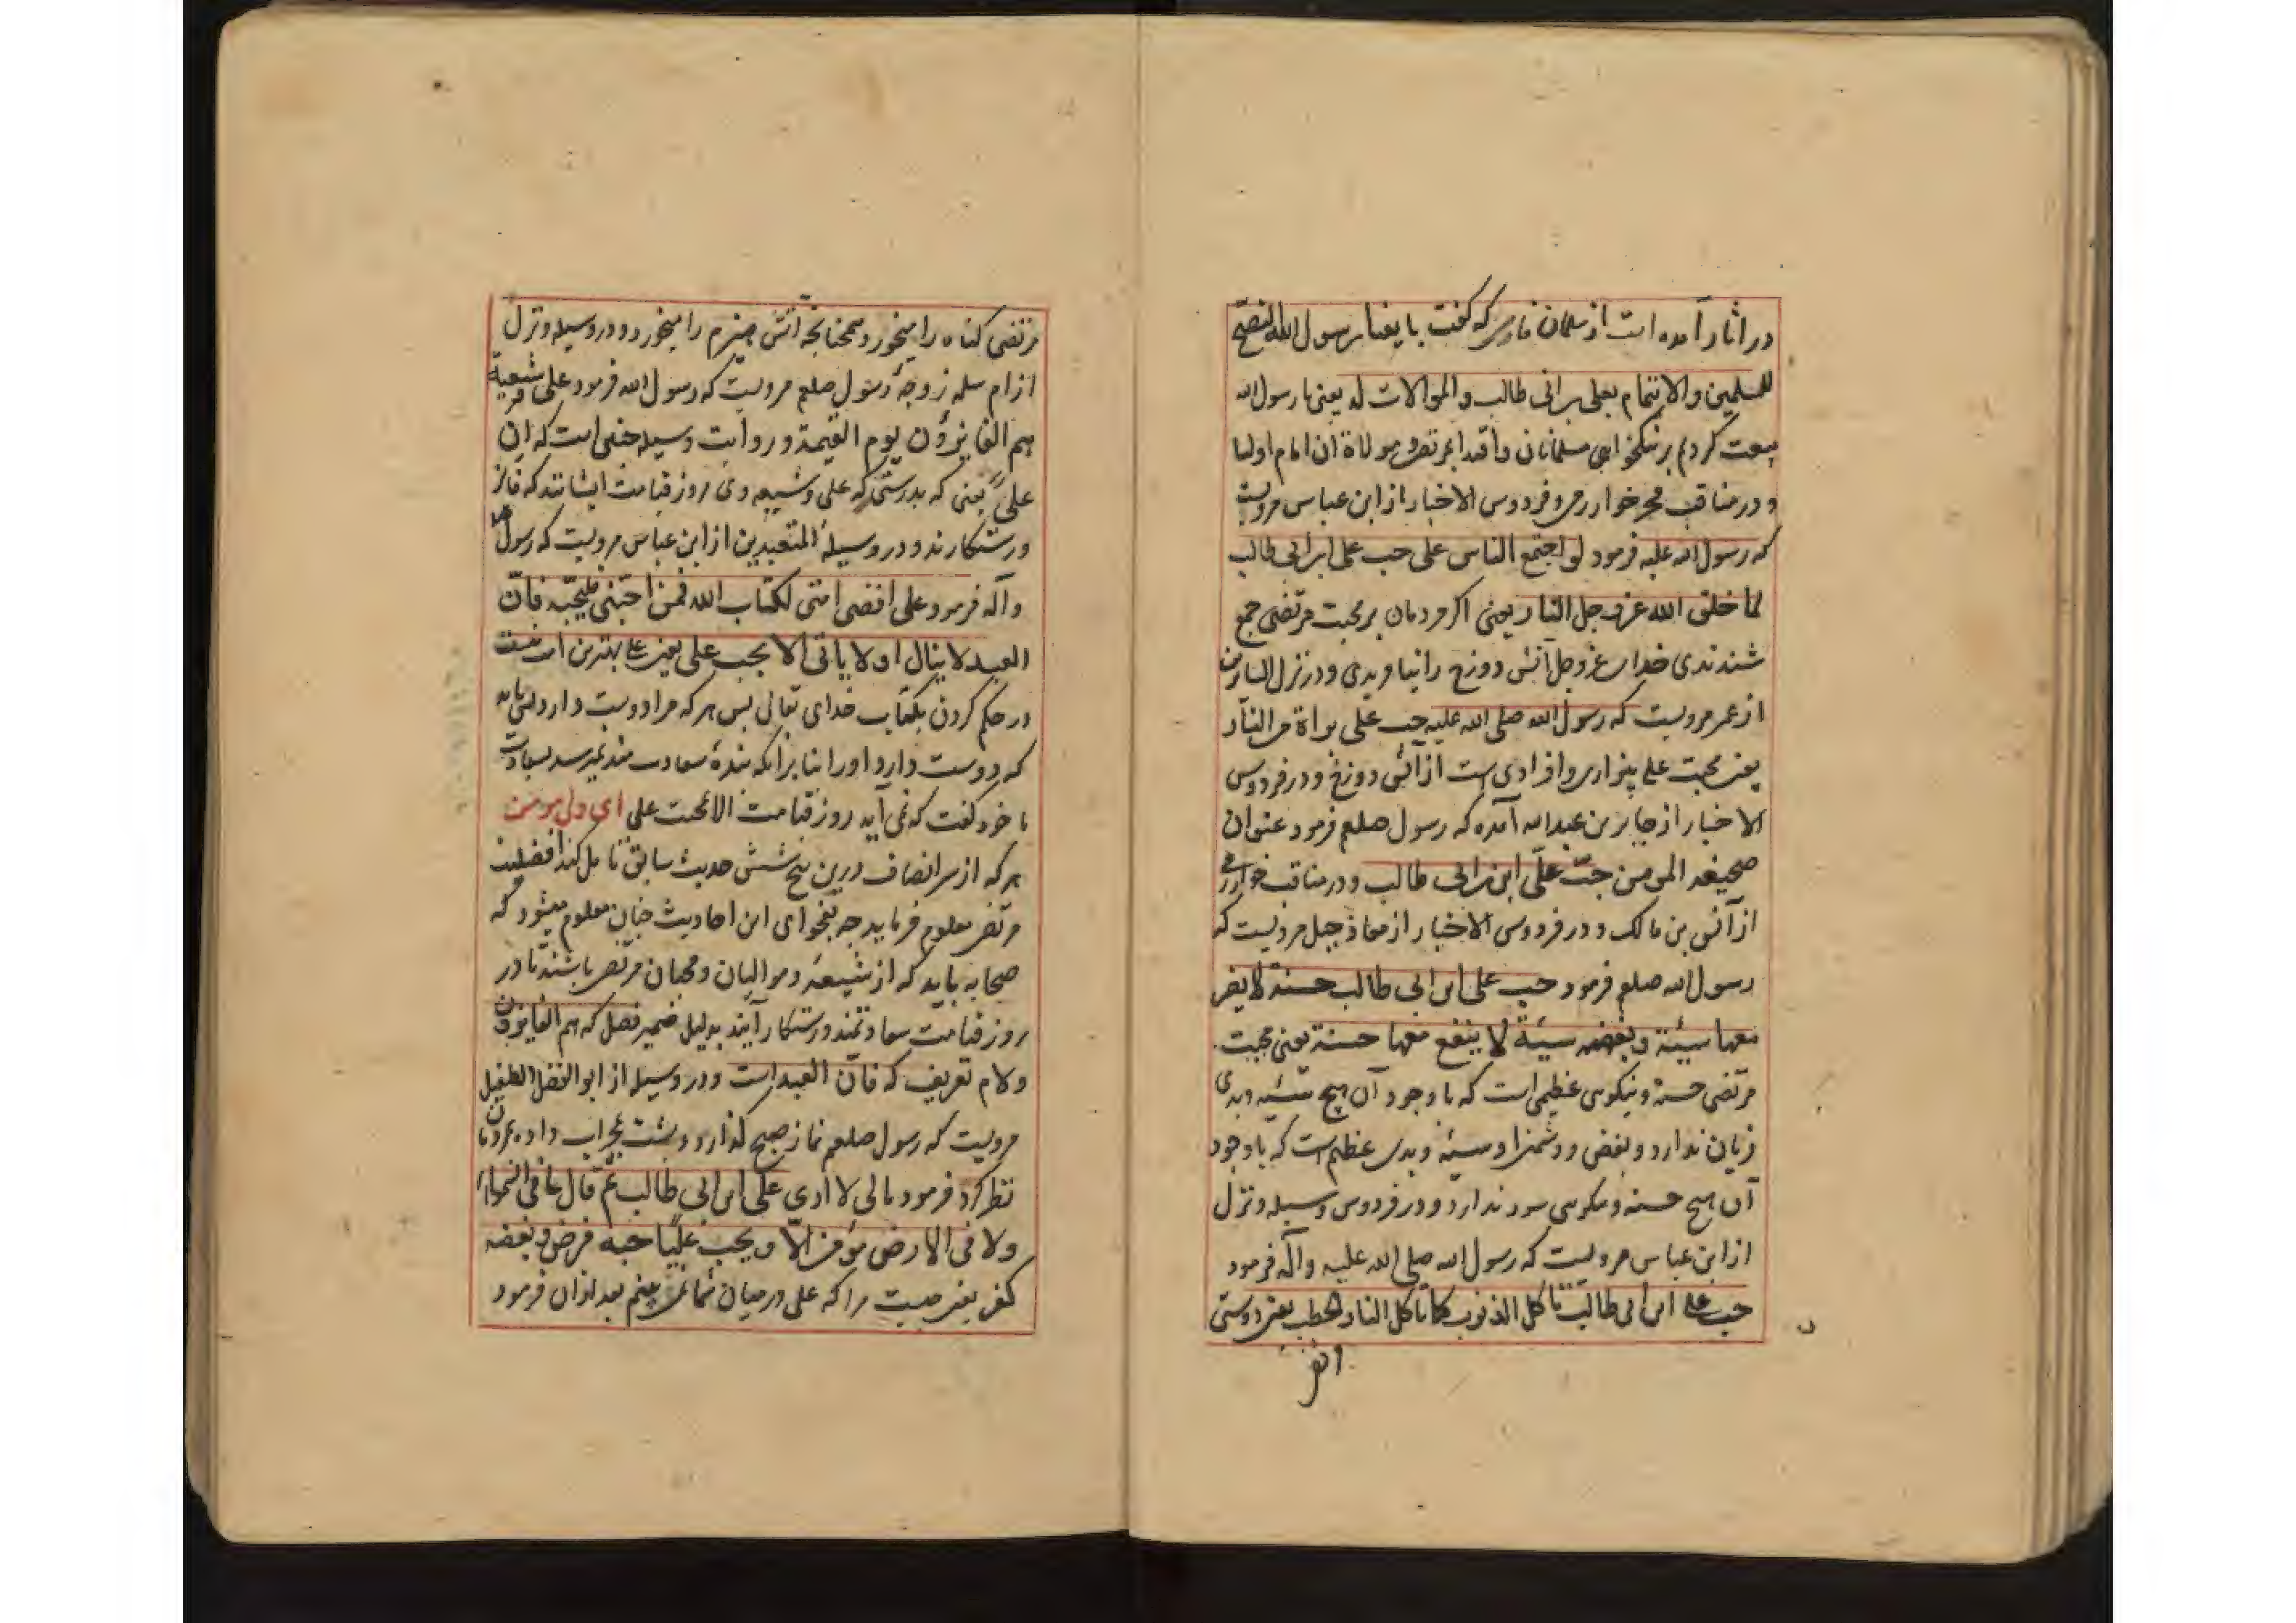 در اثار آمده است از سلمان فارسی که گفت بایعنا رسول الله النصح
للمسلمین والایتمام بعلی بن ابی طالب والموالات له یعنی با رسول الله
بیعت کردیم بر نیکخواهی مسلمانان و اقتدا بمرتضی و موالاة ان امام اولیا
و در مناقب خوارزمی و فردوس الاخبار از ابن عباس مرویست
که رسول الله علیه فرمود لو اجتمع الناس علی حب علی ابن ابی طالب
لما خلق الله عز و جل النار یعنی اکر مردمان بر محبت مرتضی جمع
شدندی خدای عز و جل آتش دوزخ را نیافریدی و در نزل السایرین
از عمر مرویست که رسول الله صلی الله علیه حب علی براة من النار
یعنی محبت علی بیزاری و ازادی است از آتش دوزخ و در فردوس
الاخبار از جابر بن عبد الله آمده که رسول صلعم فرمود عنوان
صحیفه المومن حبّ علّی ابن ابی طالب و در مناقب خوارزمی
از آنس بن مالک و در فردوس الاخبار از معاذ جبل مرویست که
رسول الله صلعم فرمود حب علی ابن ابی طالب حسنة لا یضر
معها سیئة و بغضه سیئة لا ینفع معها حسنة یعنی محبت
مرتضی حسنه و نیکویی عظیمی است که با وجود آن هیچ سیئه و بدی
زیان ندارد و بغض و دشمنی او سیئه و بدی عظیم است که با وجود
آن هیچ حسنه و نیکویی سود ندارد و در فردوس و وسیله و نزل
از ابن عباس مرویست که رسول الله صلی الله علیه و آله فرمود
حب علی ابن ابی طالب تاکل الذنوب کما تاکل النار الحطب یعنی دوستی
مرتضی کناه را میخورد همچنانچه آتش هیزم را میخورد و در وسیله و نزل
از ام سلمه زوجهٔ رسول صلعم مرویست که رسول الله فرمود علی و شیعیة
هم الفایزون یوم القیمة و روایت وسیله چنین است که ان
علیّ یعنی که بدرستی که علی و شیعه وی روز قیامت ایشانند که فائز
و رستکارند و در وسیلة المتعبدین از ابن عباس مرویست که رسول
و آله فرمود علی اقضی امتی لکتاب الله فمن احبنی فلیحبه فانّ
العبد لا ینال اولا یاتی الا بحب علی یعنی علی بهترین امت منست
در حکم کردن بکتاب خدای تعالی پس هر که مرا دوست دارد باید
که دوست دارد او را بنا برانکه بندهٔ سعادت مند نمیرسد بسعادت
یا خود گفت که نمی آید روز قیامت الا بمحبت علی ای ولی مومن
هر که از سر انصاف درین پنج شش حدیث سابق تامل کند افضلیت
مرتضی معلوم فرماید چه بفحوای این احادیث چنان معلوم میشود که
صحابه باید که از شیعهٔ و موالیان و محبان مرتضی باشند تا در
روز قیامت سعادتمند و رستکار آیند بدلیل ضمیر فصل که هم الفایزون
و لام تعریف که فانّ العبد است و در وسیله از ابو الفضل الطفیل
مرویست که رسول صلعم نماز صبح گذارد و پشت بمحراب داده بمردمان
نظر کرد فرمود مالی لا اری علی ابن ابی طالب ثم قال ما فی السموات
ولا فی الارض مؤمن الّا و یحب علیّا حبه فرض و بغضه
کفر یعنی چیست مرا که علی در میان شما نمی بینم بعد ازان فرمود